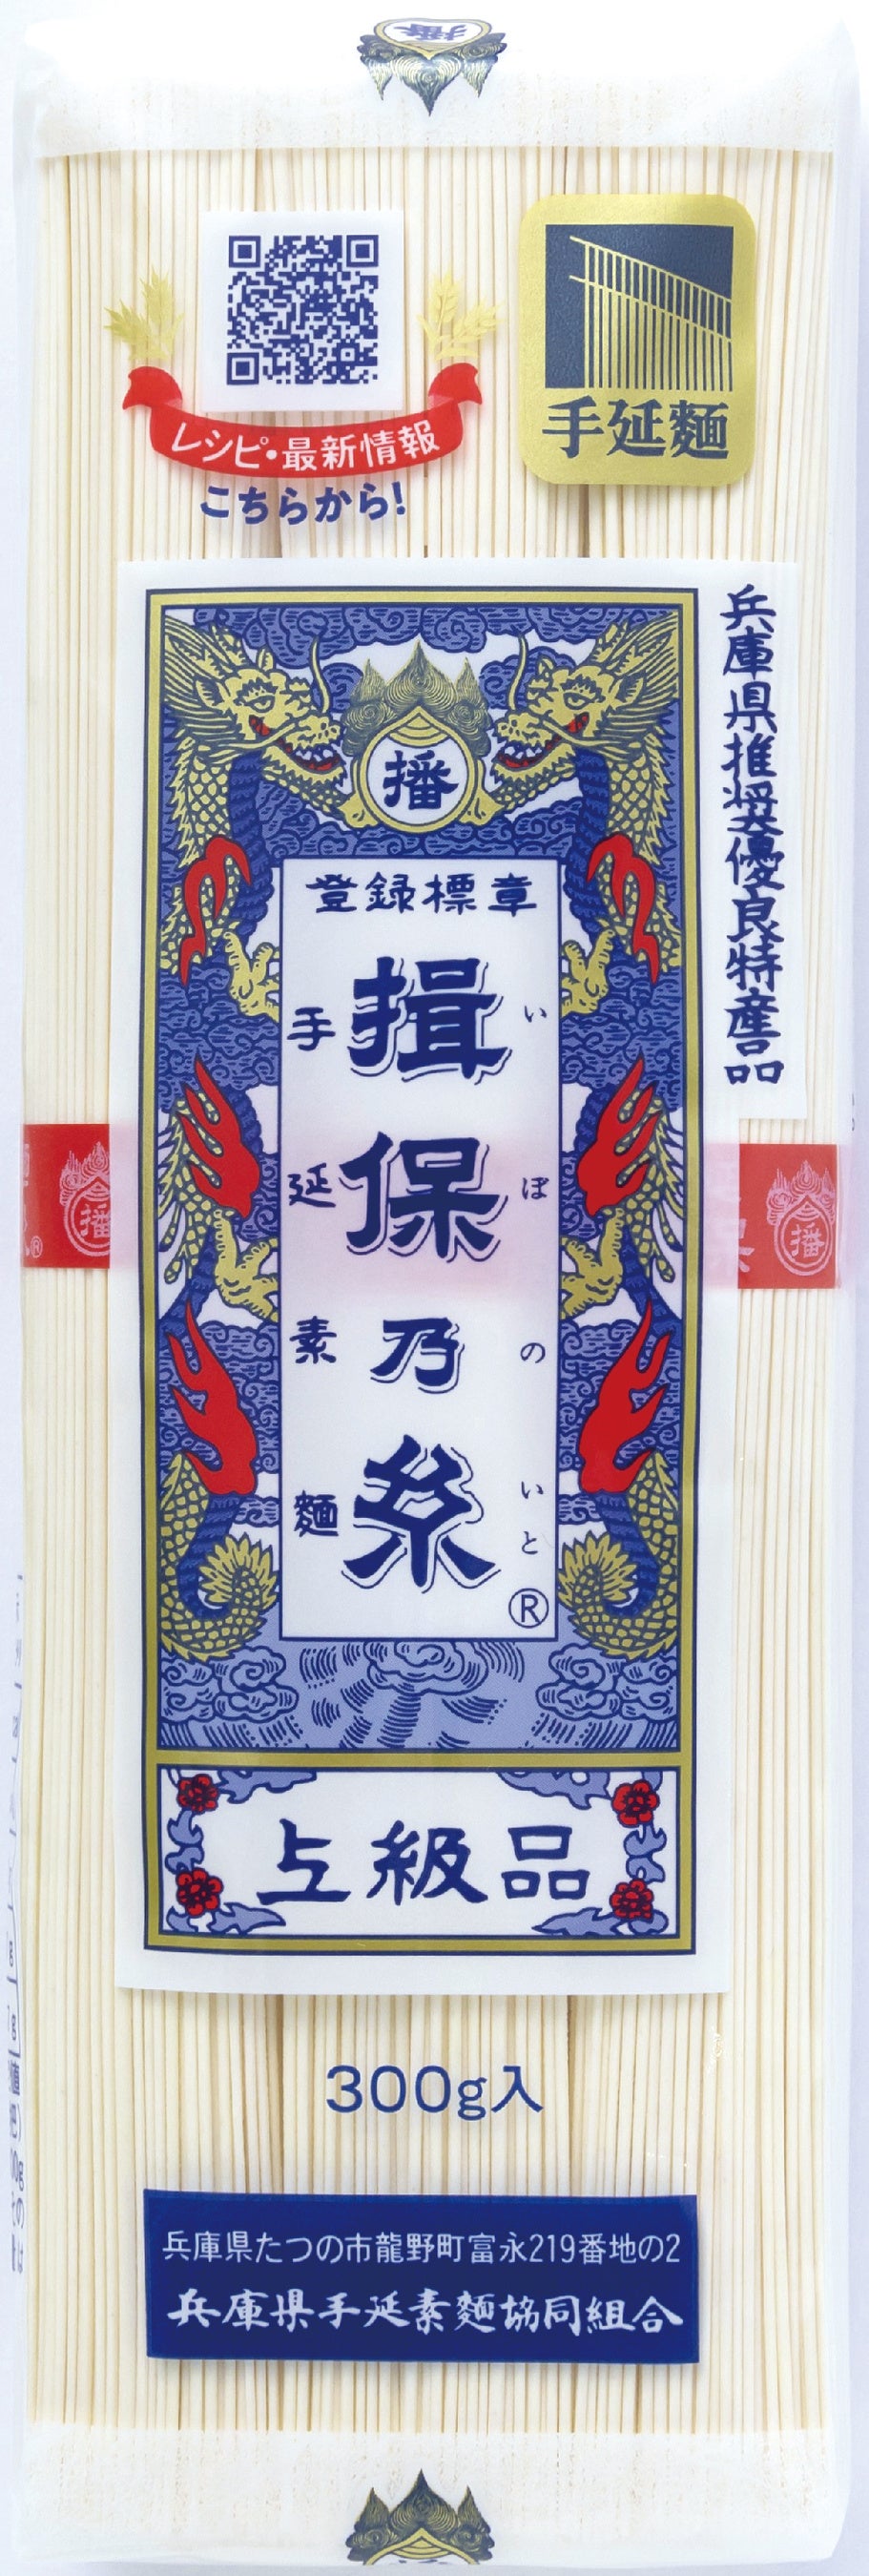 播
レシピ・最新情報
こちらから!
手延麺
兵庫県推奨優良特産品
播
登録標章
いぼのいと
揖保乃糸
®
手延素麺
播
播
上級品
300g入
兵庫県たつの市龍野町富永219番地の2
兵庫県手延素麺協同組合